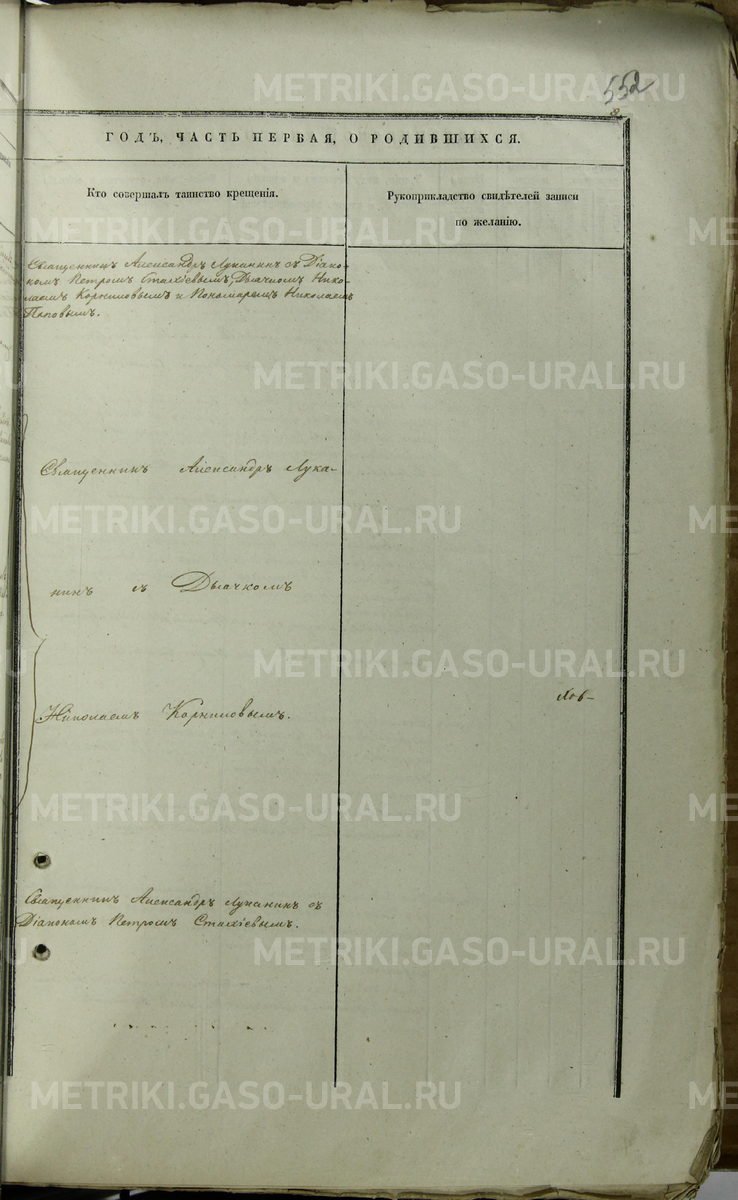 552
ГОДЪ, ЧАСТЬ ПЕРВАЯ, О РОДИВШИХСЯ.
Кто совершалъ таинство крещенія.
Рукоприкладство свидѣтелей записи
по желанію.
Священникъ Александръ Луканинъ съ Діако-
номъ Петромъ Стахіевымъ, Дьячкомъ Нико-
лаемъ Корниловымъ и Пономаремъ Николаемъ
Поповымъ.
Священникъ Александръ Лука-
нинъ съ Дьячкомъ
Николаемъ Корниловымъ.
Священникъ Александръ Луканинъ съ
Діакономъ Петромъ Стахіевымъ.
METRIKI.GASO-URAL.RU
METRIKI.GASO-URAL.RU
METRIKI.GASO-URAL.RU
METRIKI.GASO-URAL.RU
METRIKI.GASO-URAL.RU
METRIKI.GASO-URAL.RU
METRIKI.GASO-URAL.RU
METRIKI.GASO-URAL.RU